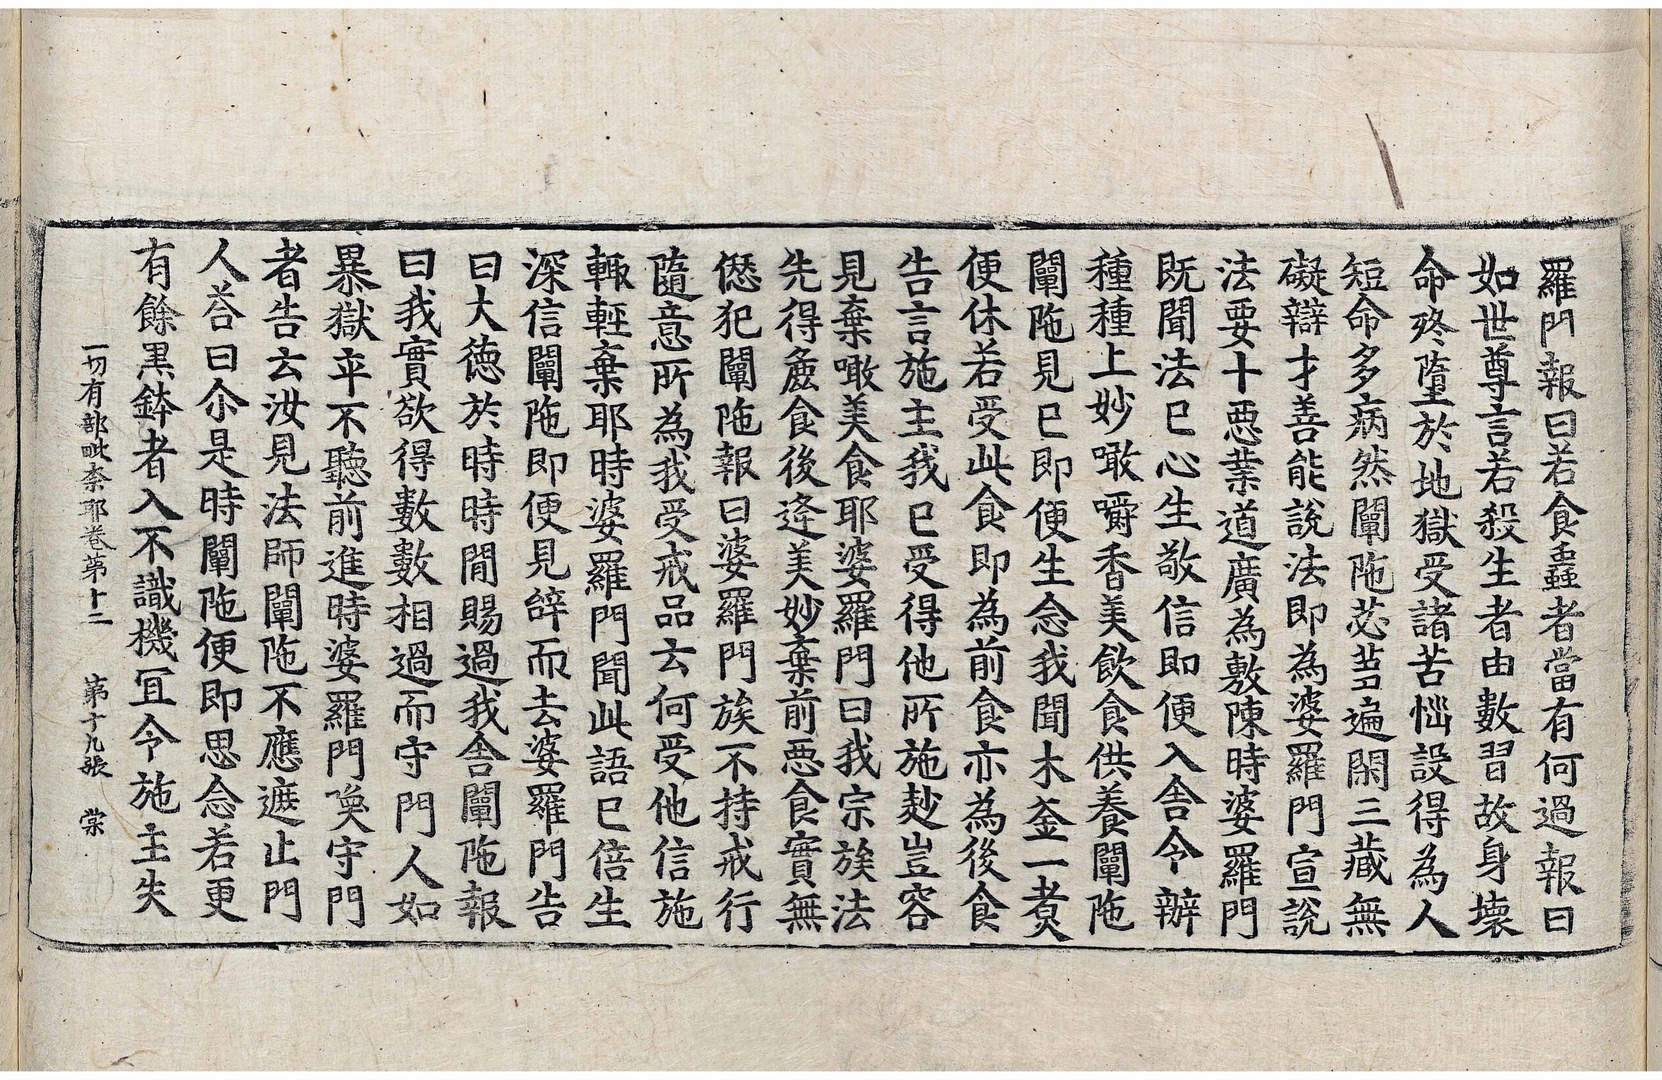 羅門報曰若食蟲者當有何過報曰
如世尊言若殺生者由數習故身壞
命終墮於地獄受諸苦惱設得為人
短命多病然闡陁苾芻遍閑三藏無
礙辯才善能說法即為婆羅門宣說
法要十惡業道廣為敷陳時婆羅門
既聞法已心生敬信即便入舍令辦
種種上妙噉嚼香美飲食供養闡陁
闡陁見已即便生念我聞木釜一煮
便休若受此食即為前食亦為後食
告言施主我已受得他所施麨豈容
見棄噉美食耶婆羅門曰我宗族法
先得麁食後逢美妙棄前惡食實無
僽犯闡陁報曰婆羅門族不持戒行
隨意所為我受戒品云何受他信施
輙輕棄耶時婆羅門聞此語已倍生
深信闡陁即便見辞而去婆羅門告
曰大德於時時間賜過我舍闡陁報
曰我實欲得數數相過而守門人如
暴獄卒不聽前進時婆羅門喚守門
者告云汝見法師闡陁不應遮止門
人荅曰尒是時闡陁便即思念若更
有餘黑鉢者入不識機冝令施主失
一切有部毗奈耶卷第十二 第十九張 棠